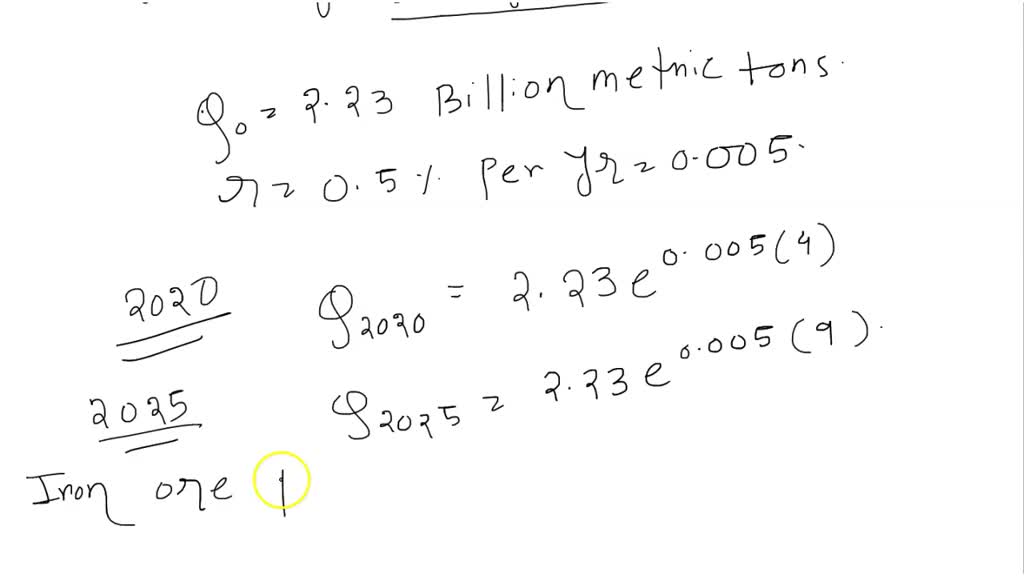 φ₀ = 2.23 Billion metric tons.
r = 0.5 % per yr = 0.005.
2020 φ₂₀₂₀ = 2.23 e^0.005(4)
2025 φ₂₀₂₅ = 2.23 e^0.005(9).
Iron ore p